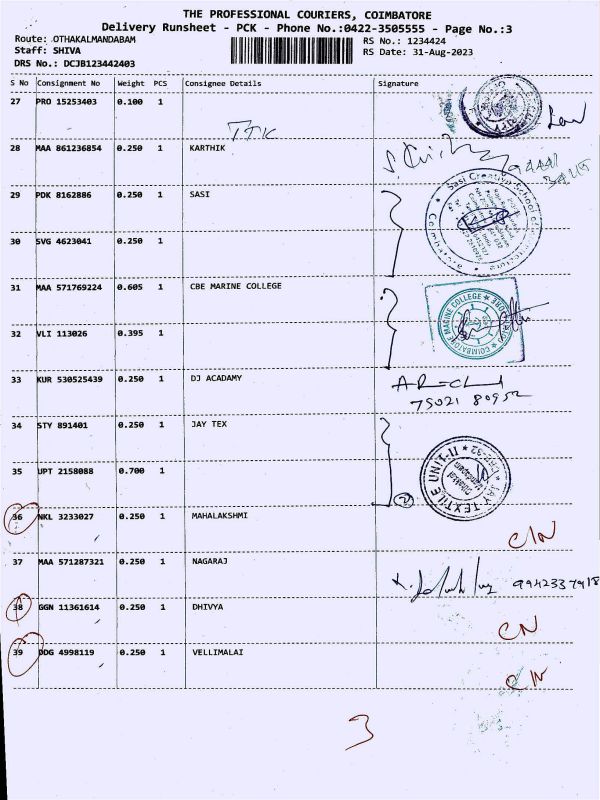 THE PROFESSIONAL COURIERS, COIMBATORE
Delivery Runsheet - PCK - Phone No.:0422-3505555 - Page No.:3
Route: OTHAKALMANDABAM
Staff: SHIVA
DRS No.: DCJB123442403
RS No.: 1234424
RS Date: 31-Aug-2023
S No Consignment No Weight PCS Consignee Details Signature
27 PRO 15253403 0.100 1
TTK
28 MAA 861236854 0.250 1 KARTHIK
29 PDK 8162886 0.250 1 SASI
Sasi Creative School of
30 SVG 4623041 0.250 1
31 MAA 571769224 0.605 1 CBE MARINE COLLEGE
COIMBATORE MARINE COLLEGE
32 VLI 113026 0.395 1
33 KUR 530525439 0.250 1 DJ ACADAMY
75021 80952
34 STY 891401 0.250 1 JAY TEX
35 UPT 2158088 0.700 1
JAY TEXTILE UNIT-II
2
36 NKL 3233027 0.250 1 MAHALAKSHMI
C/N
37 MAA 571287321 0.250 1 NAGARAJ
9942337918
38 GGN 11361614 0.250 1 DHIVYA
CN
39 DDG 4998119 0.250 1 VELLIMALAI
CN
3